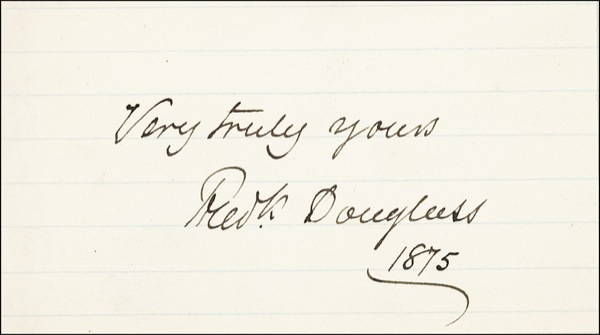 Very truly yours
Fredk. Douglass
1875